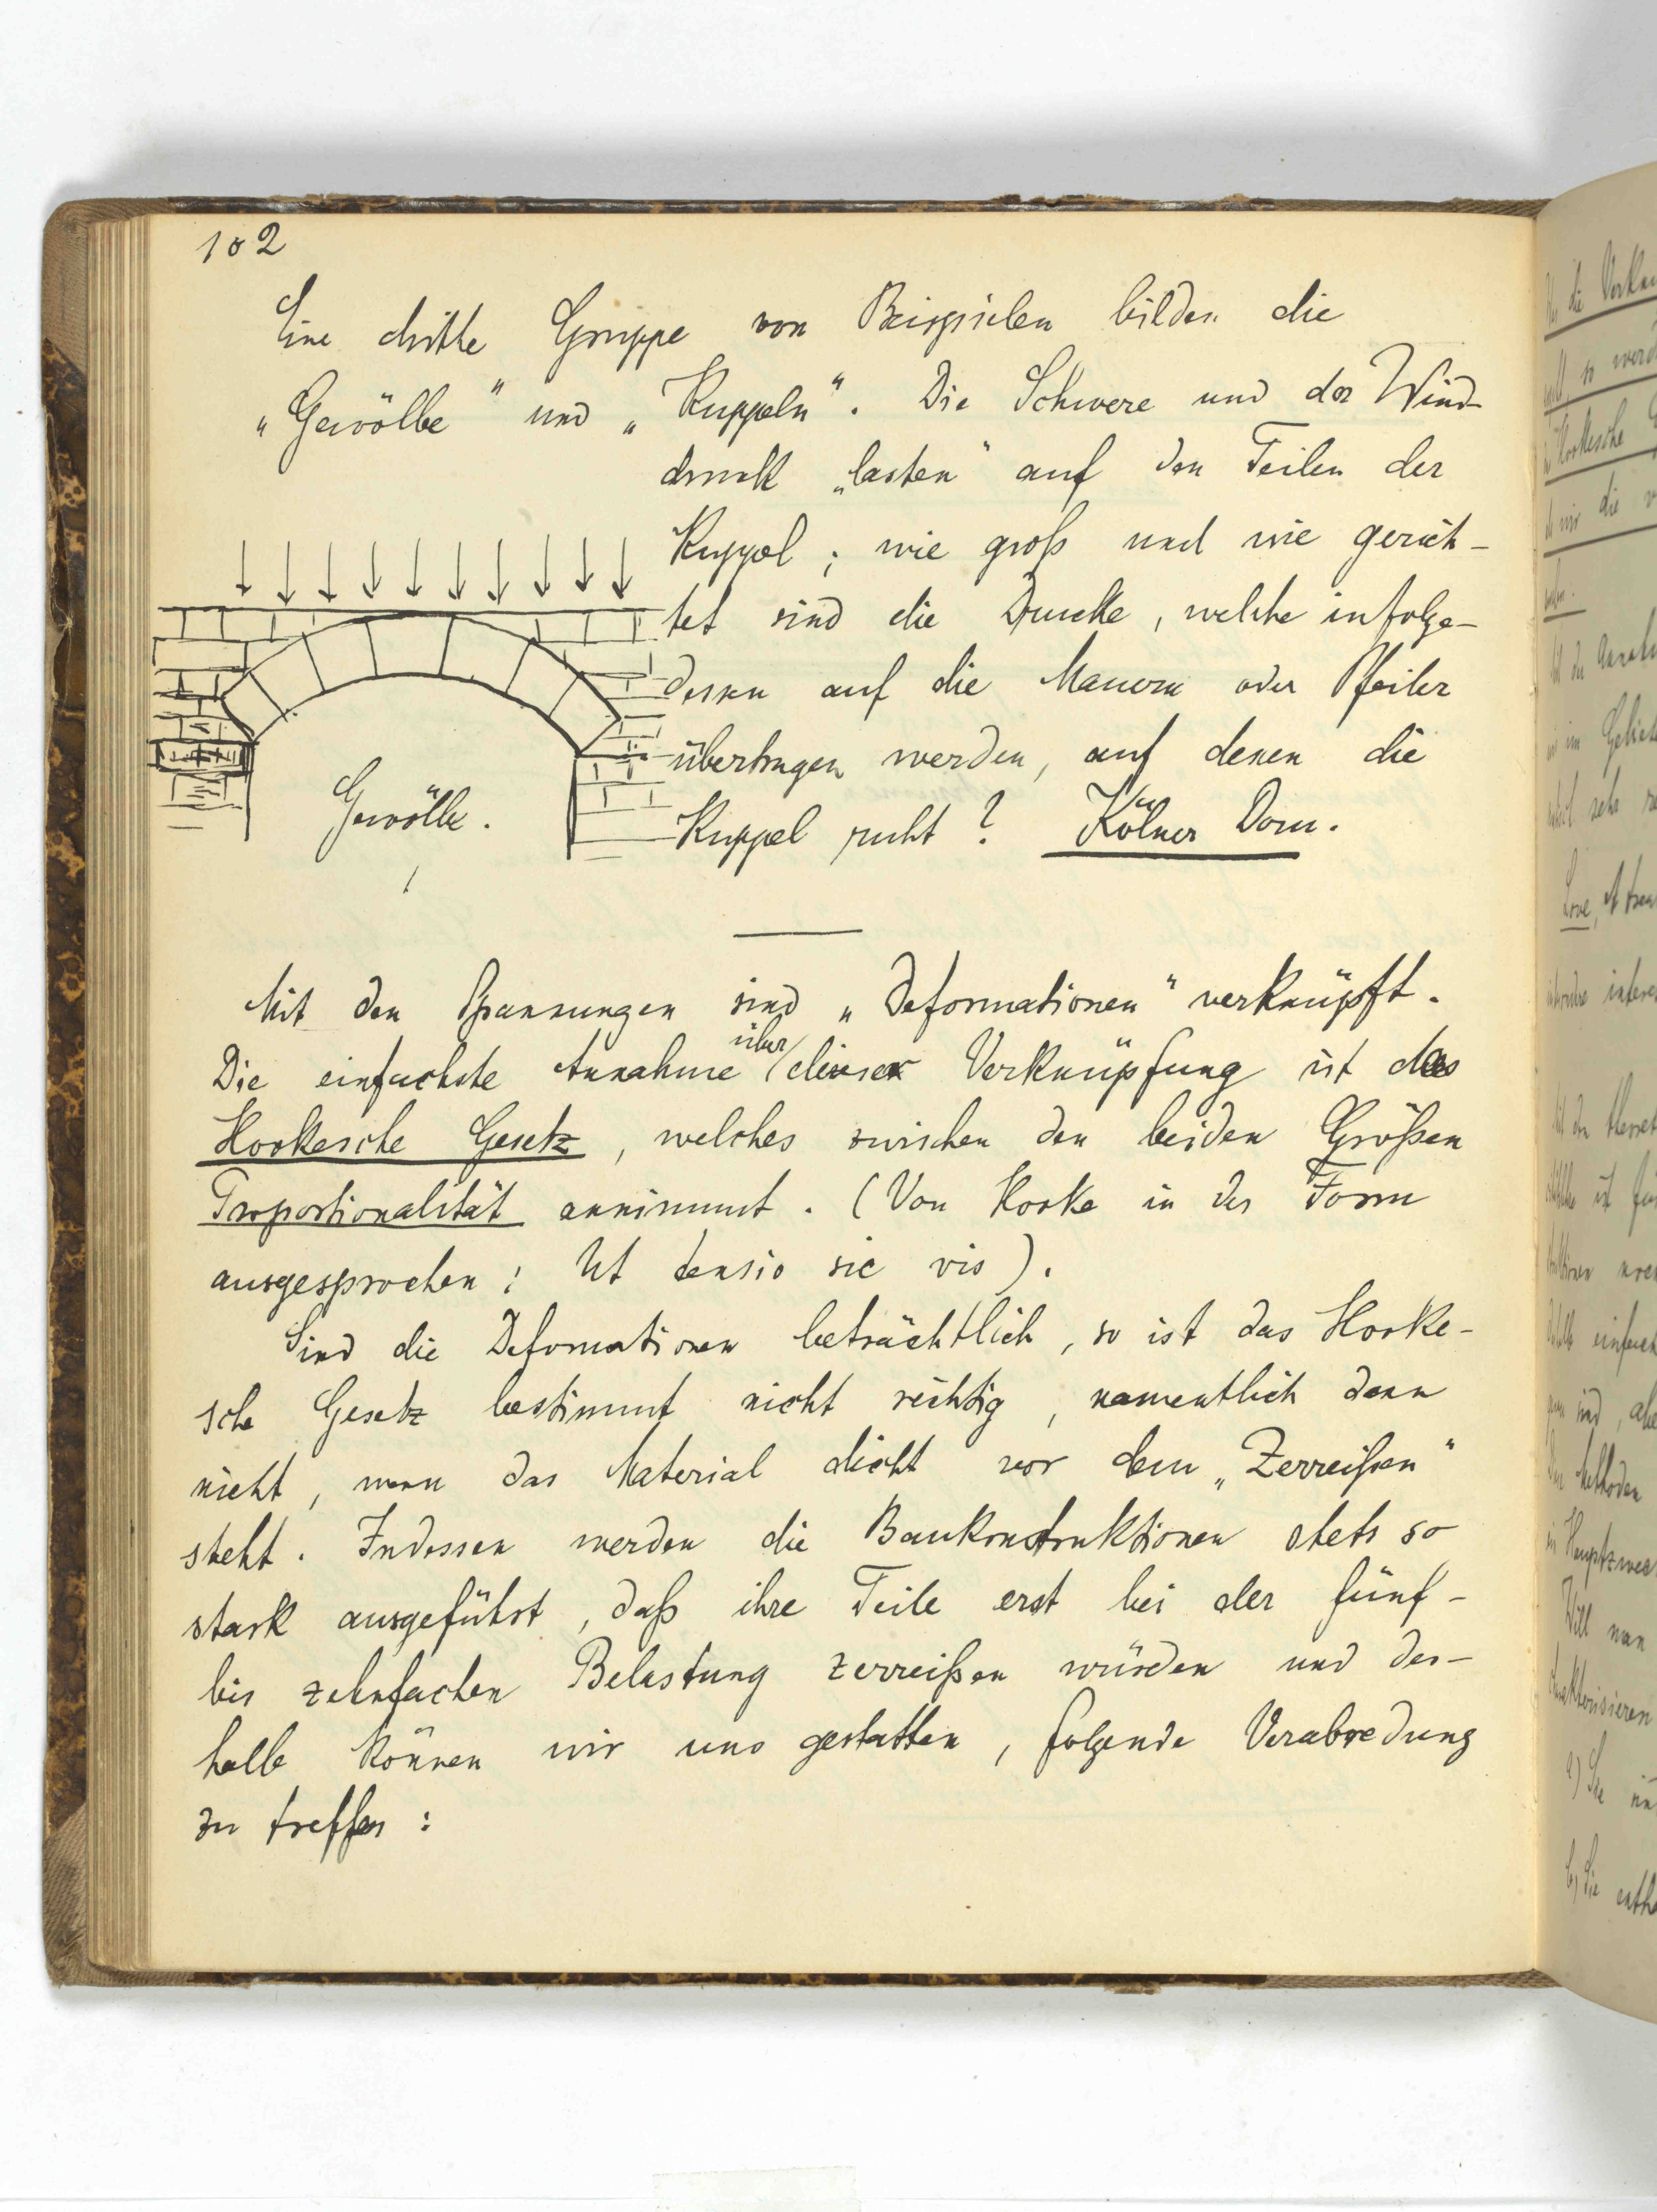 102
Eine dritte Gruppe von Beispielen bilden die
„Gewölbe" und „Kuppeln". Die Schwere und der Wind-
druck „lasten" auf den Teilen der
Kuppel; wie groß und wie gerich-
tet sind die Drucke, welche infolge-
dessen auf die Mauern oder Pfeiler
übertragen werden, auf denen die
Kuppel ruht? Kölner Dom.
Gewölbe.
Mit den Spannungen sind „Deformationen" verknüpft.
Die einfachste Annahme über dieser Verknüpfung ist das
Hookesche Gesetz, welches zwischen den beiden Größen
Proportionalität annimmt. (Von Hooke in der Form
ausgesprochen: Ut tensio sic vis).
Sind die Deformationen beträchtlich, so ist das Hooke-
sche Gesetz bestimmt nicht richtig, namentlich dann
nicht, wenn das Material dicht vor dem „Zerreißen"
steht. Indessen werden die Baukonstruktionen stets so
stark ausgeführt, daß ihre Teile erst bei der fünf-
bis zehnfachen Belastung zerreißen würden und des-
halb können wir uns gestatten, folgende Verabredung
zu treffen: